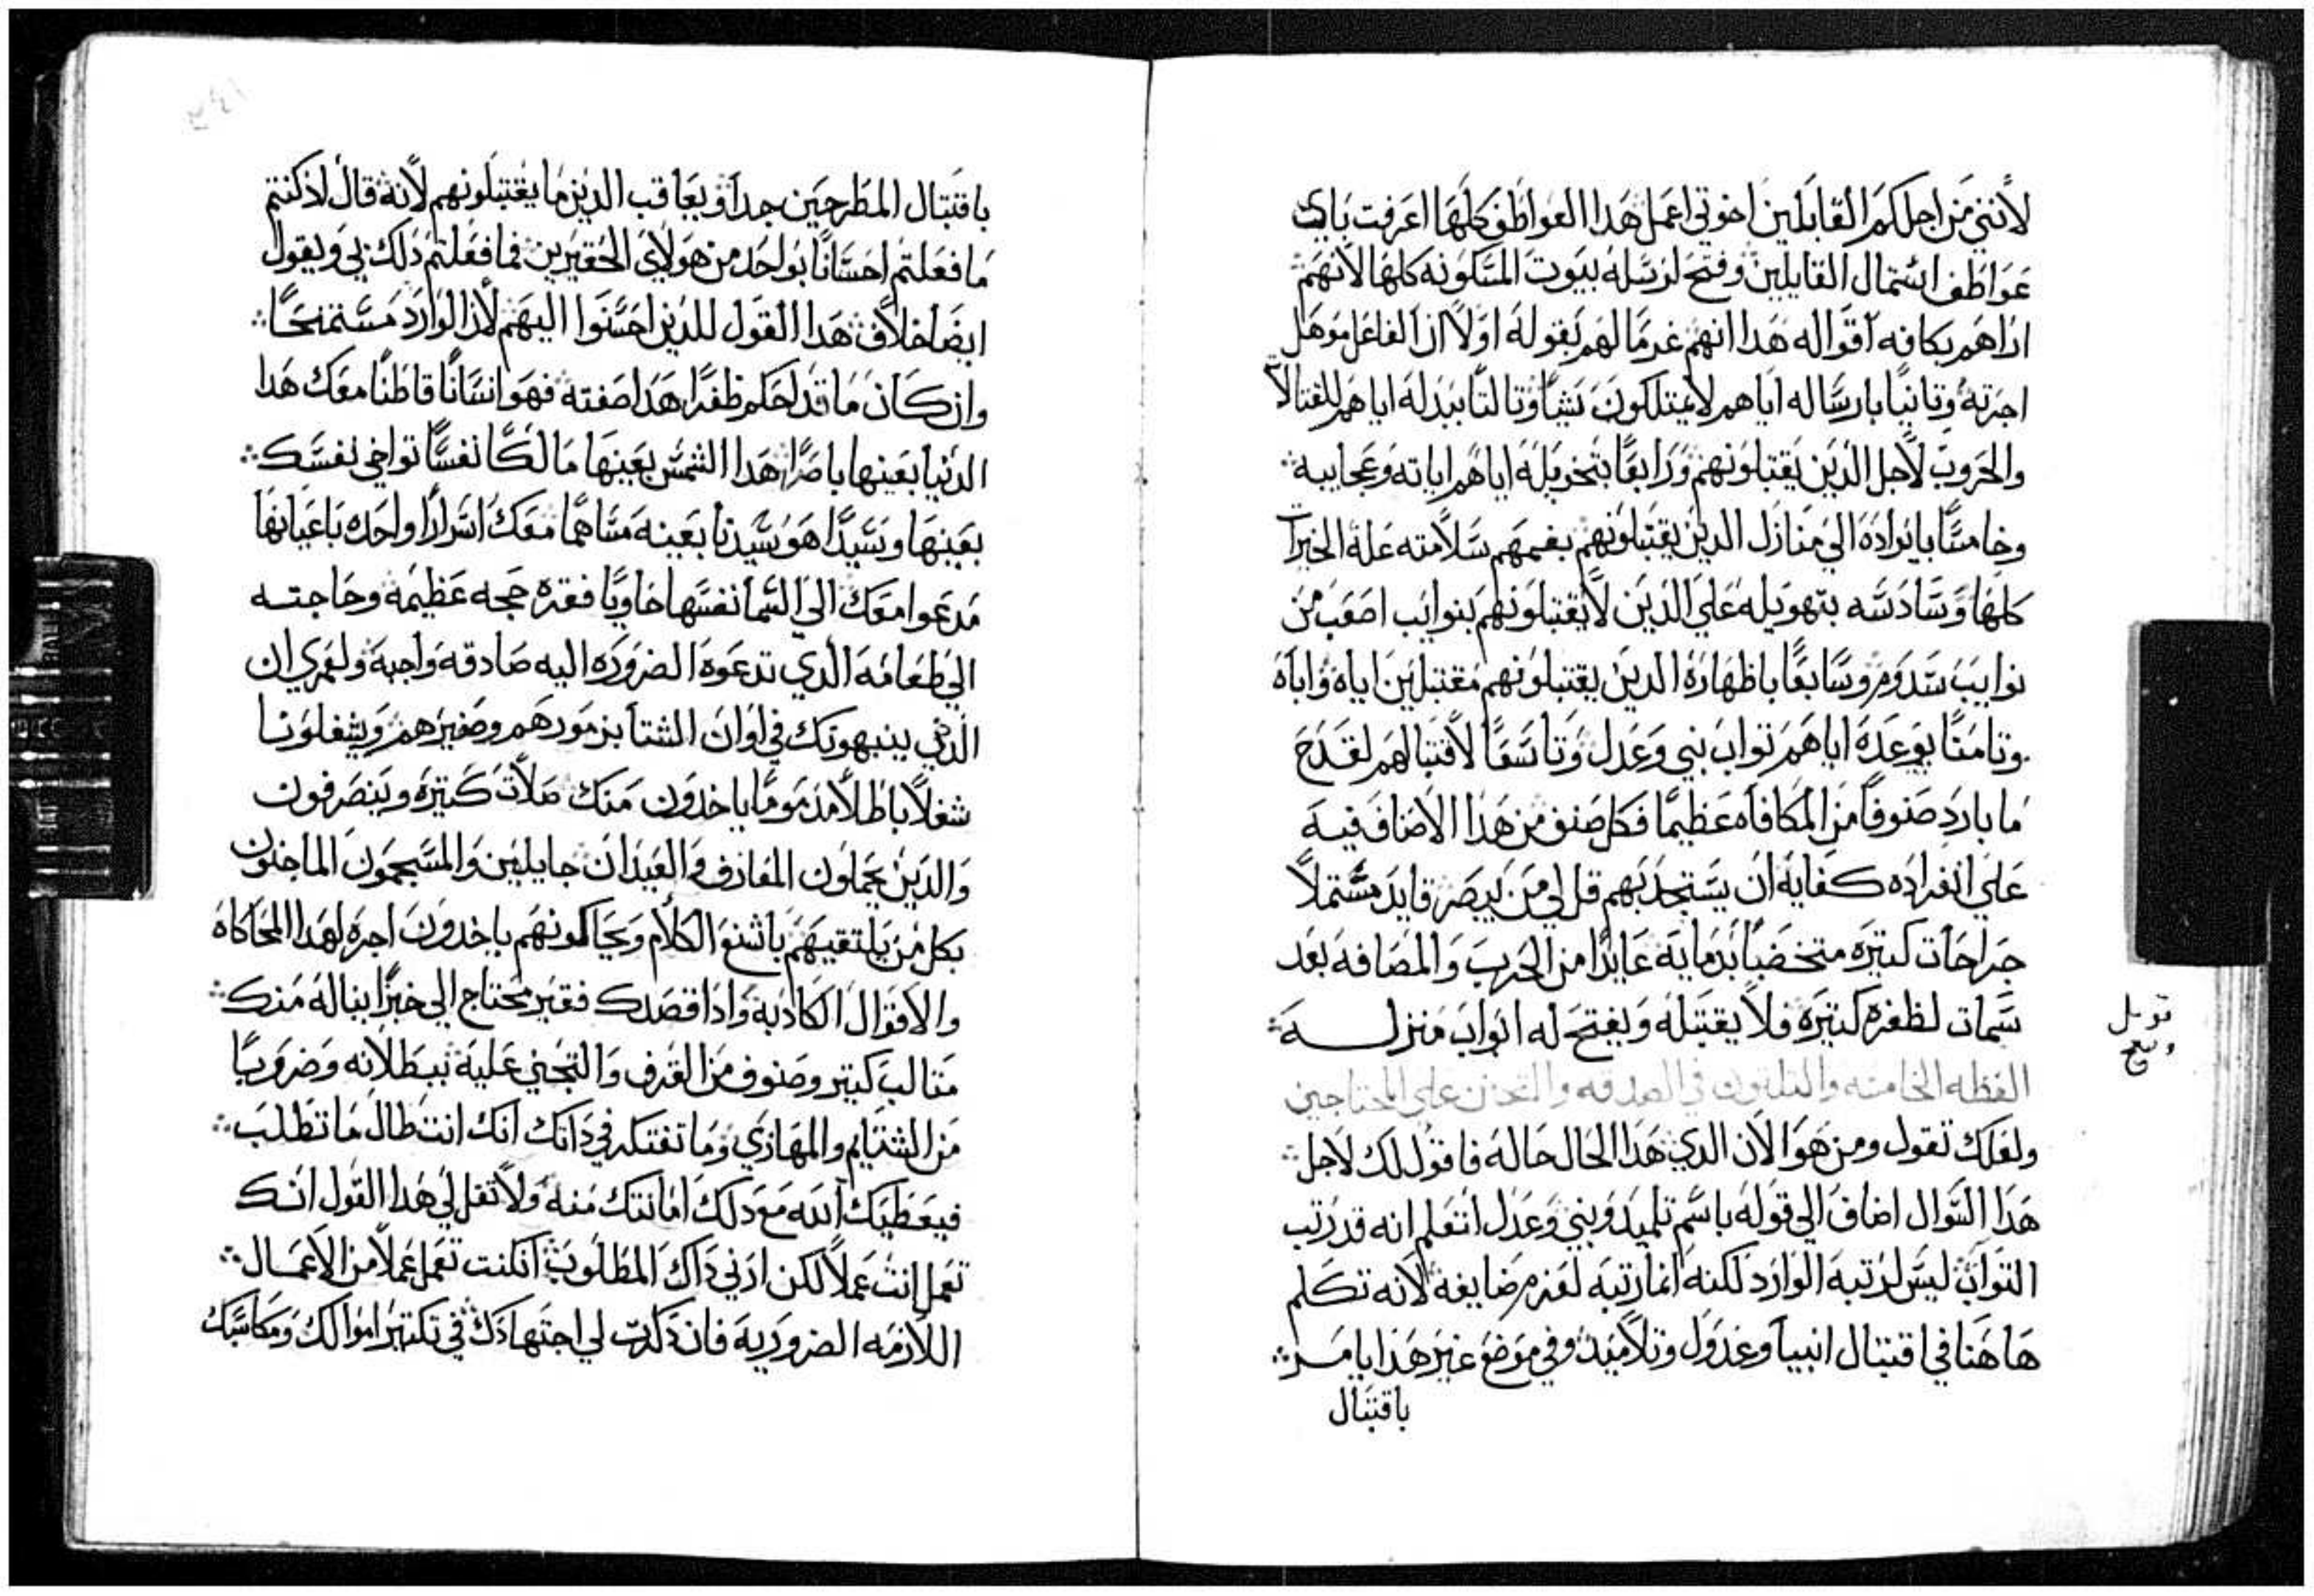 لأنني من اجلكم القابلين اخوتي اعمل هذا العواطف كلها اعرفت باي
عواطف اشتمال القابلين وفتح لرسله بيوت المسكونه كلها لأنهم
اراهم بكافه اقواله هذا انهم غرما لهم بقوله اولاً ان الفاعل موهل
اجرته وتانيًا بارساله اياهم لا يمتلكون شيًا وتالتًا ببدله اياهم للقتالات
والحروب لأجل الدين يقتبلونهم ورابعًا بتخويله اياهم اياته وعجايبه
وخامسًا بايراده الي منازل الدين يقتبلونهم بفمهم سلامته علة الخيرات
كلها وسادسه بتهويله علي الدين لا يقتبلونهم بنوايب اصعب من
نوايب سدوم وسابعًا باظهاره الدين يقتبلونهم مقتبلين اياه واباه
وتامنًا بوعده اياهم تواب نبي وعدل وتاسعًا لاقتبالهم لقدح
ما بارد صنوفًا من المكافاه عظيمًا فكل صنف من هذا الاصناف فيه
علي انفراده كفايه ان يستجدبهم قل لي من يبصر قايد مشتملاً
جراحات كتيره متخضبًا بدمايه عايدًا من الحرب والمصافه بعد
سمات لظفره كتيرة فلا يقتبله ويفتح له ابواب منزله
العظه الخامسه والتلتون في الصدقه والتحنن علي المحتاجين
ولعلك تقول ومن هو الان الدي هذا الحال حاله فاقول لك لاجل
هذا السوال اضاف الي قوله باسم تلميد ونبي وعدل لتعلم انه قد رتب
التواب ليس لرتبه الوارد لكنه انما رتبه لعزم مضايفه لأنه تكلم
هاهنا في اقتبال انبيا وعدول وتلاميد وفي موضع غير هذا يامر
باقتبال
قوبل
وصح
باقتبال المطرحين جدًا ويعاقب الدين ما يقتبلونهم لأنه قال اد كنتم
ما فعلتم احسانًا بواحد من هولاي الحقيرين فما فعلتم دلك بي ويقول
ايضًا خلاف هذا القول للدين احسنوا اليهم لأن الوارد مستمنحًا
وان كان ما قد احكم ظفرًا هذا صفته فهو انسانًا قاطنًا معك هذا
الدنيا بعينها باصرًا هذا الشمس بعينها مالكًا نفسًا تواخي نفسك
بعينها وسيدًا هو سيدنا بعينه مساهمًا معك اسرارًا واحده باعيانها
مدعوا معك الي السما نفسها حاويًا فقره حجه عظيمه وحاجته
الي طعامه الدي تدعوه الضروره اليه صادقه واجبه ولعمري ان
الدين ينبهونك في اوان الشتا بزمورهم وصفيرهم ويشغلونا
شغلاً باطلاً مدمومًا ياخدون منك صلات كتيره وينصرفون
والدين يحملون المعازف والعيدان جايلين والمسجعون الماجنون
بكل من يلتقيهم باشنع الكلام ويحاكونهم ياخدون اجره لهدا المحاكاه
والاقوال الكادبه وادا قصدك فقير محتاج الي خبزًا يناله منك
متالب كتير وصنوف من القدف والتجني عليه ببطلانه وضروبًا
من الشتايم والمهازي وما تفتكر في داتك انك انت طال ما تطلب
فيعطيك الله مع دلك اماتك منه ولا تقل لي هذا القول انك
تعمل انت عملاً لكن ادني داك المطلوب ان كنت تعمل عملاً من الاعمال
اللازمه الضروريه فان دكرت لي اجتهادك في تكتير اموالك ومكاسبك